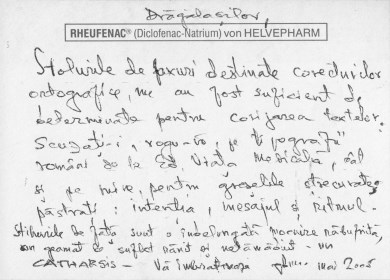 Drăgălașilor,
RHEUFENAC® (Diclofenac-Natrium) von HELVEPHARM
Stolurile de faxuri destinate corecturilor
ortografice, nu au fost suficient de
determinate pentru corijarea textelor.
Scuzați-i, rogu-vă, pe "tipografii"
români de la Ed Viața Medicală, cât
și pe mine, pentru greșelile strecurate
păstrați: intenția, mesajul și ritmul.
Stihurile de față sunt o îndelungată mocnire năbușită,
un geamăt de suflet rănit și nelămădit - un
CATHARSIS - Vă îmbrățișează mai 2005